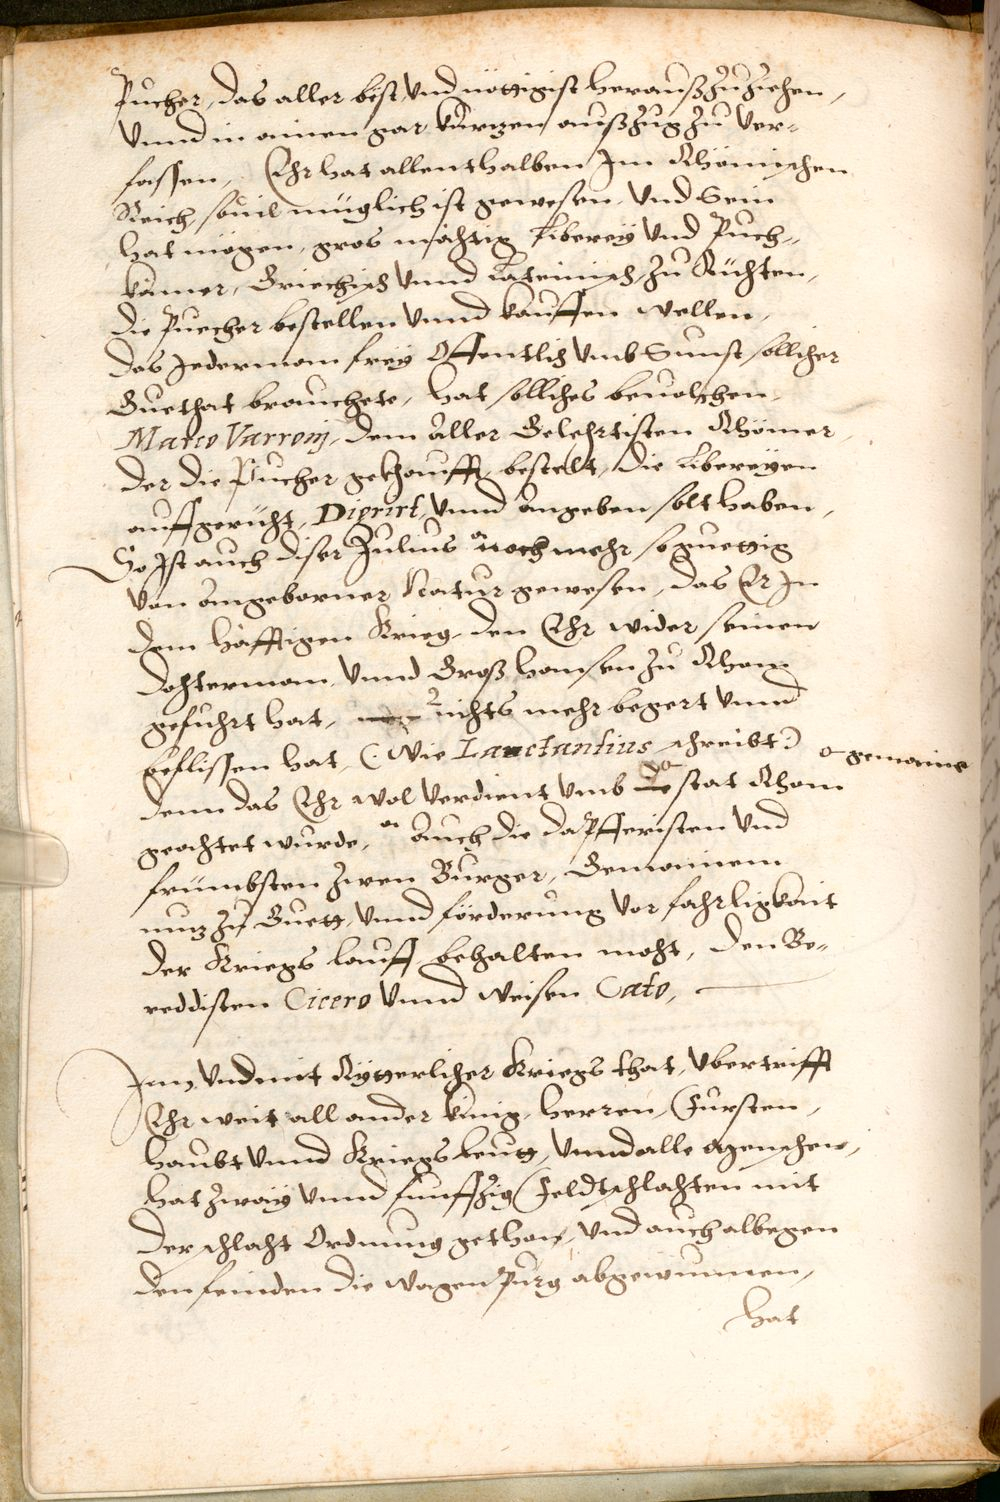 Püecher, das aller best, und nöttigist heraußzuziehen,
Unnd in ainen gar kurtzen außzug zu ver-
fassen, Ehr hat allenthalben Im Rhömischen
Reich, souil müglich ist gewesen, Und Sein
hat mögen, gros mächtig Liberey Und Puech-
kamer, Griechisch Unnd Lateinisch, zu Richten,
die Puecher bestellen Unnd kauffen wellen,
das Jederman frey Offentlich Umb Sunst sollicher
Guethat brauchete, hat solliches beuolchen,
Marco Varronj, dem Aller Gelehrtisten Rhömer,
der die Püecher gekhaufft, bestelt, die Libereyen
auffgericht, Digrirt, Unnd Angeben solt haben,
So Ist auch diser Julius noch mehr so guettig
Von Angeborner Natur gewesen, das Er In
dem häfftigen Krieg, den Ehr wider seinen
dochterman, Unnd Groß hansen zu Rhom
gefuhrt hat, nichts mehr begert Unnd
geflissen hat, (: Wie Lanctantius schreibt:)
gemaine
denn das Ehr wol Verdient Umb die stat Rhom
geachtet wurde, auch die dapfferisten Und
frümbsten zwen Burger, Gemainem
nuz zu Guett, Unnd förderung Vor fahrligkait
der Kriegs lauff behalten mocht, den Be-
reddisten Cicero Unnd Weisen Cato,
Inn, Und mit Rytterlicher Kriegs that, Ubertrifft
Ehr weit all ander künig, herren, Fürsten,
haubt Unnd Kriegs leutt, Unnd alle Menschen,
hat zway Unnd funffzig Feldtschlachten mit
der schlacht Ordnung gethon, Und auch albegen
den feinden die Wagen Purg abgewunnen,
hat